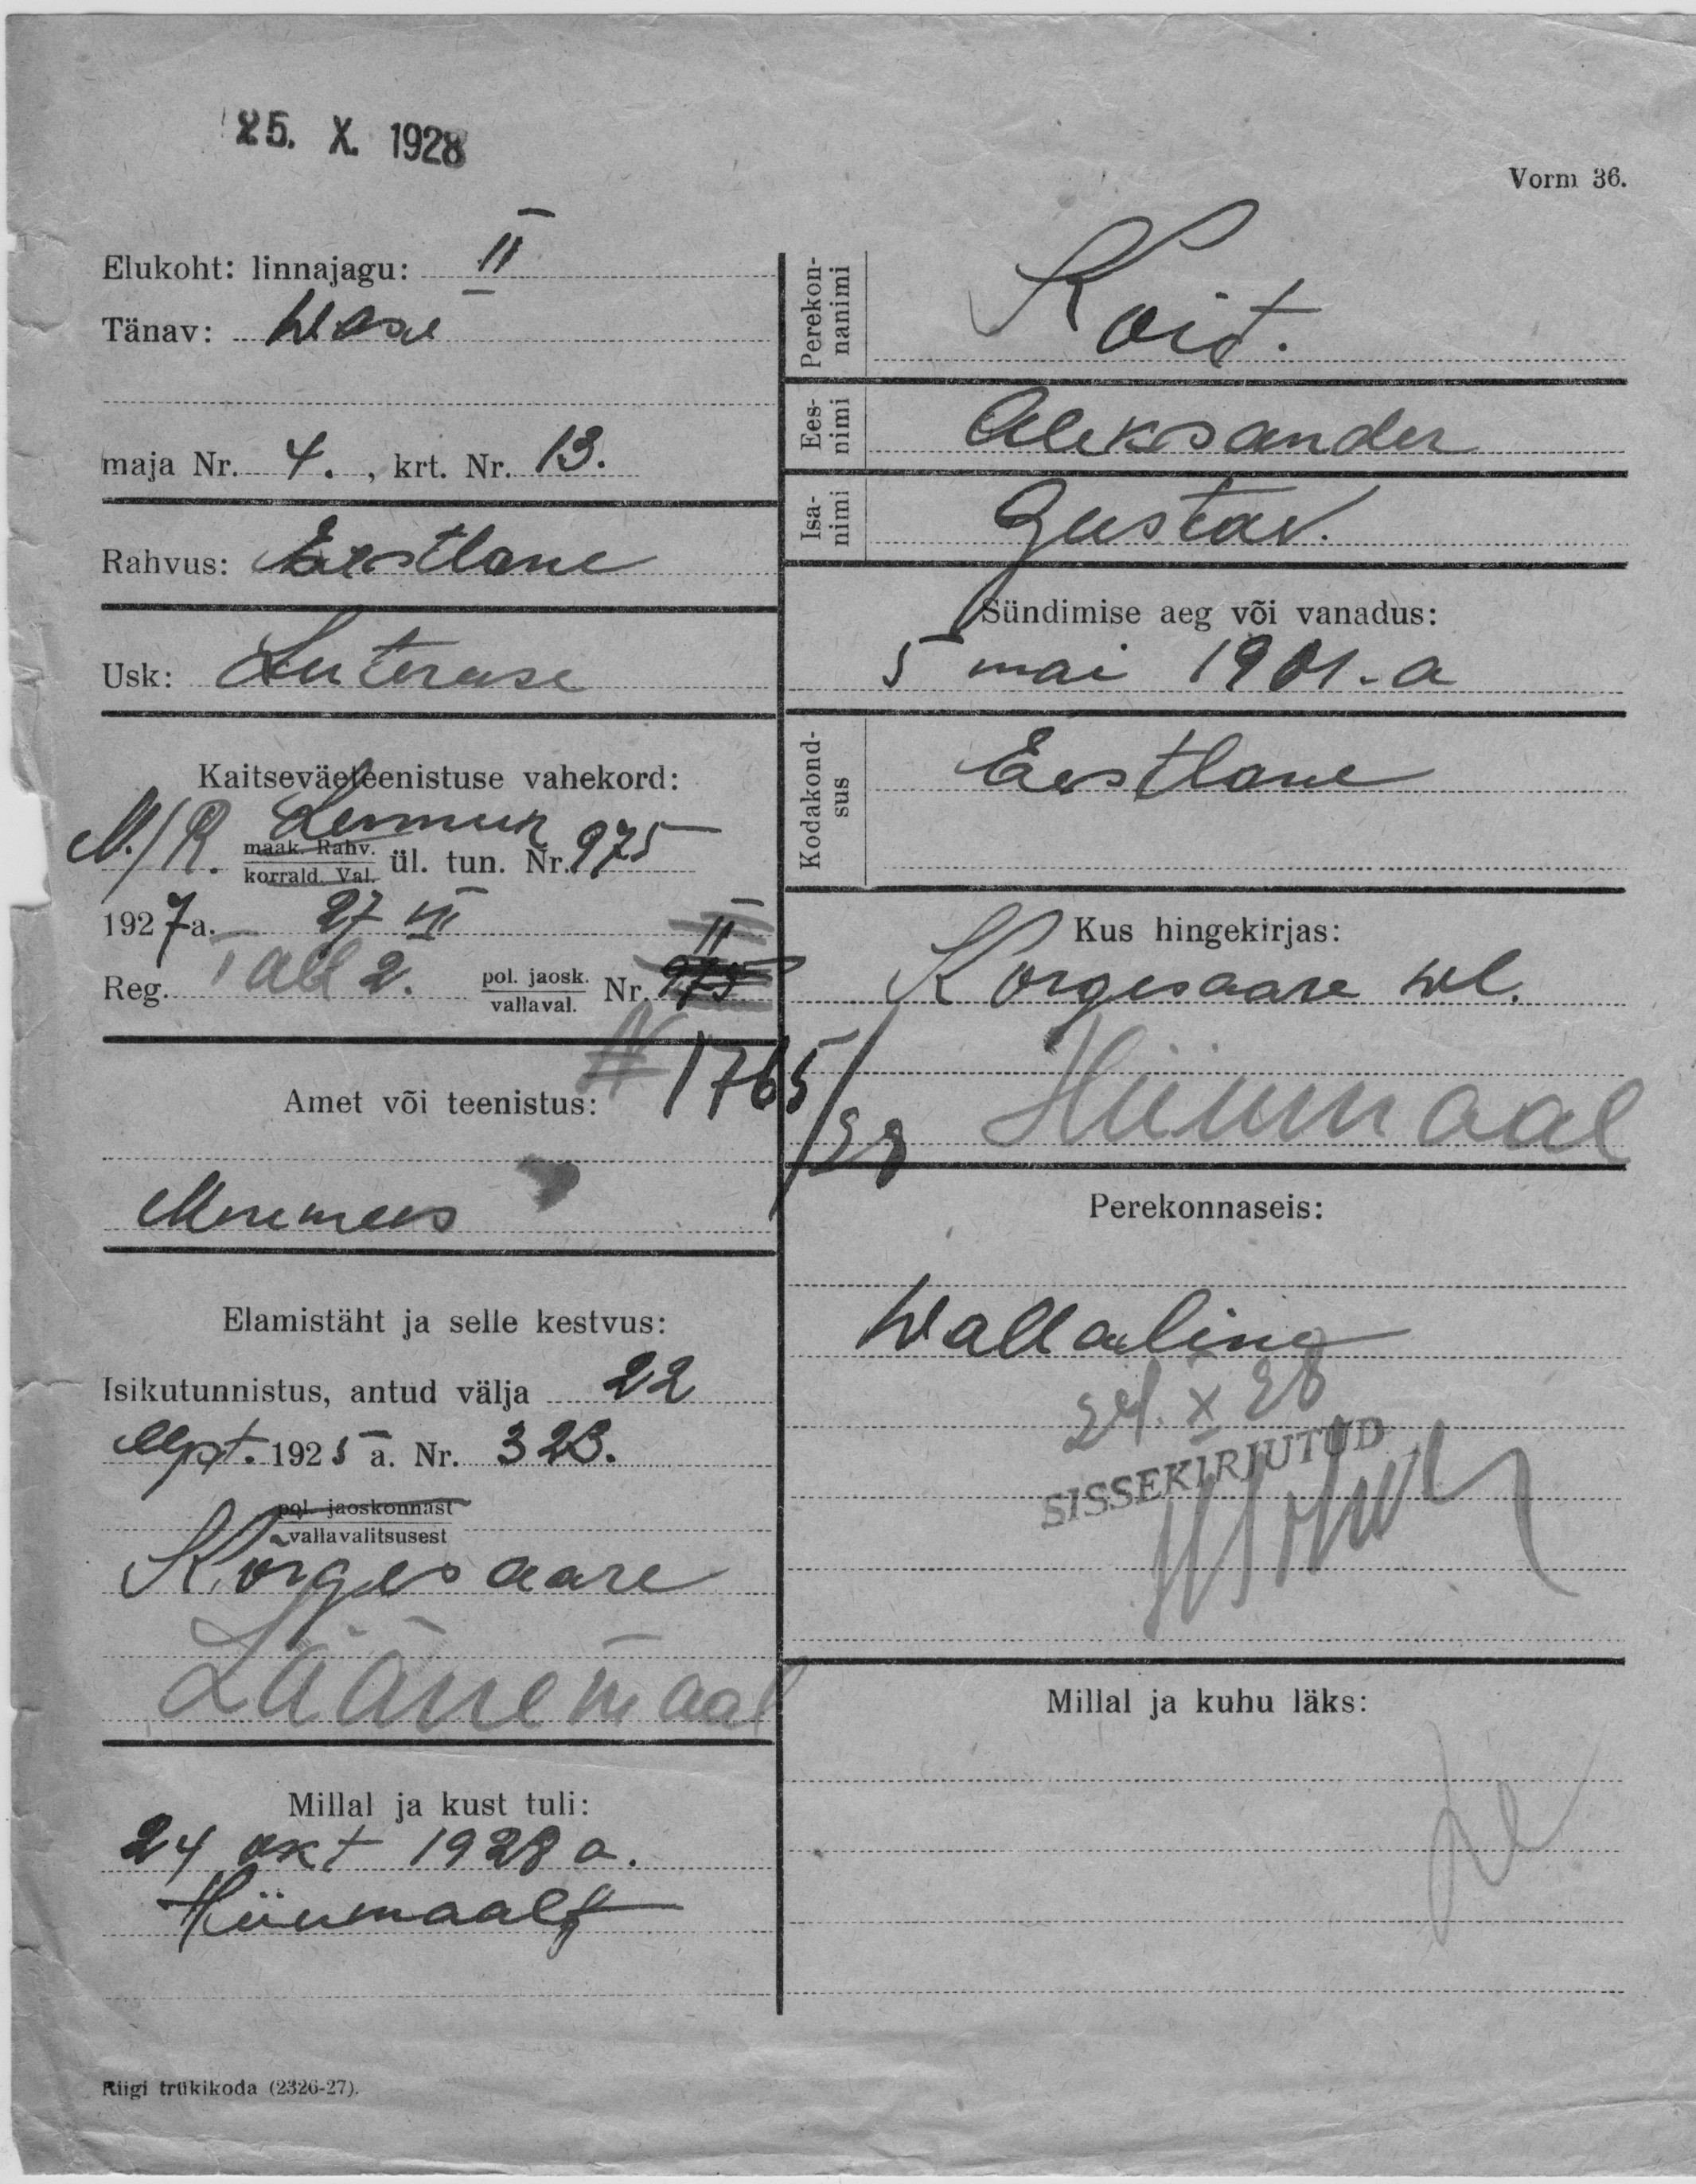 25. X. 1928
Vorm 36.
Elukoht: linnajagu: II
Tänav: Wase
maja Nr. 4., krt. Nr. 13.
Rahvus: Eestlane
Usk: Luteruse
Kaitseväeteenistuse vahekord:
M/R.
maak. Rahv.
korrald. Val. ül. tun. Nr. 975
1927 a. 27 VII
Reg. Tall 2. pol. jaosk. Nr. 975 II
vallaval.
N 1765/28
Amet või teenistus:
Meremees
Elamistäht ja selle kestvus:
Isikutunnistus, antud välja 22
sept. 1925 a. Nr. 323.
pol. jaoskonnast
vallavalitsusest
Kõrgesaare
Läänemaal
Millal ja kust tuli:
24 okt 1928 a.
Hiiumaalt
Riigi trükikoda (2326-27).
Perekon-
nanimi
Koit.
Ees-
nimi
Aleksander
Isa-
nimi
Gustav.
Sündimise aeg või vanadus:
5 mai 1901.a
Kodakond-
sus
Eestlane
Kus hingekirjas:
Korgesaare wl.
Hiiumaal
Perekonnaseis:
Wallaline
24. X 28
SISSEKIRJUTUD
Millal ja kuhu läks: